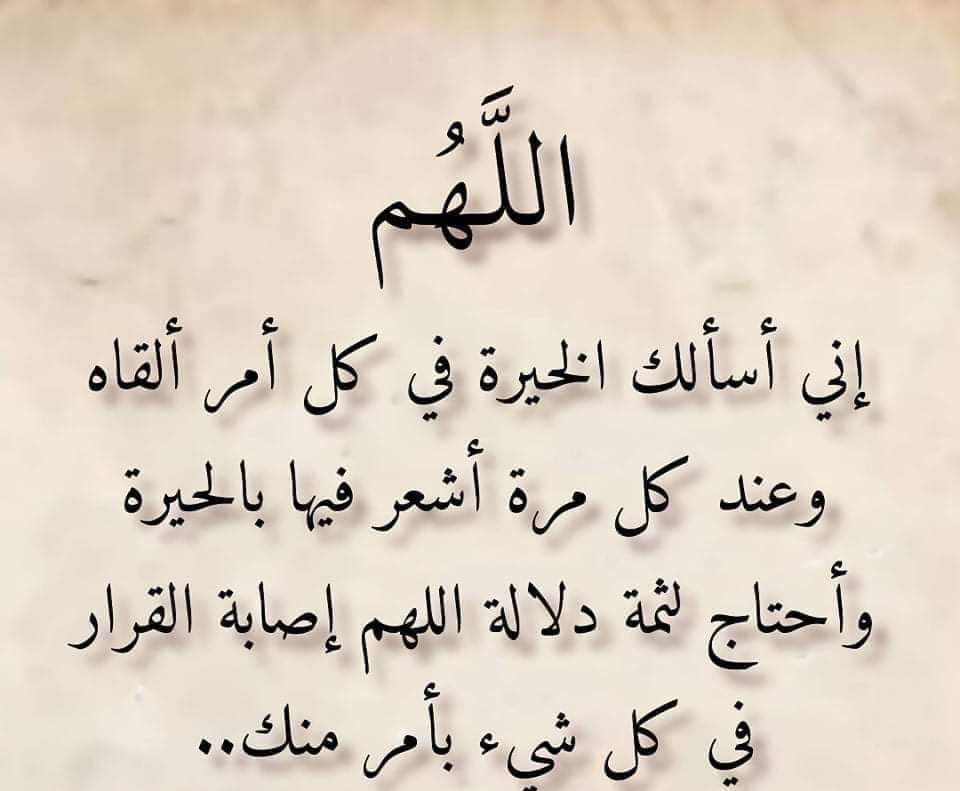 اللَّهُم
إني أسألك الخيرة في كل أمر ألقاه
وعند كل مرة أشعر فيها بالحيرة
وأحتاج لثمة دلالة اللهم إصابة القرار
في كل شيء بأمر منك..